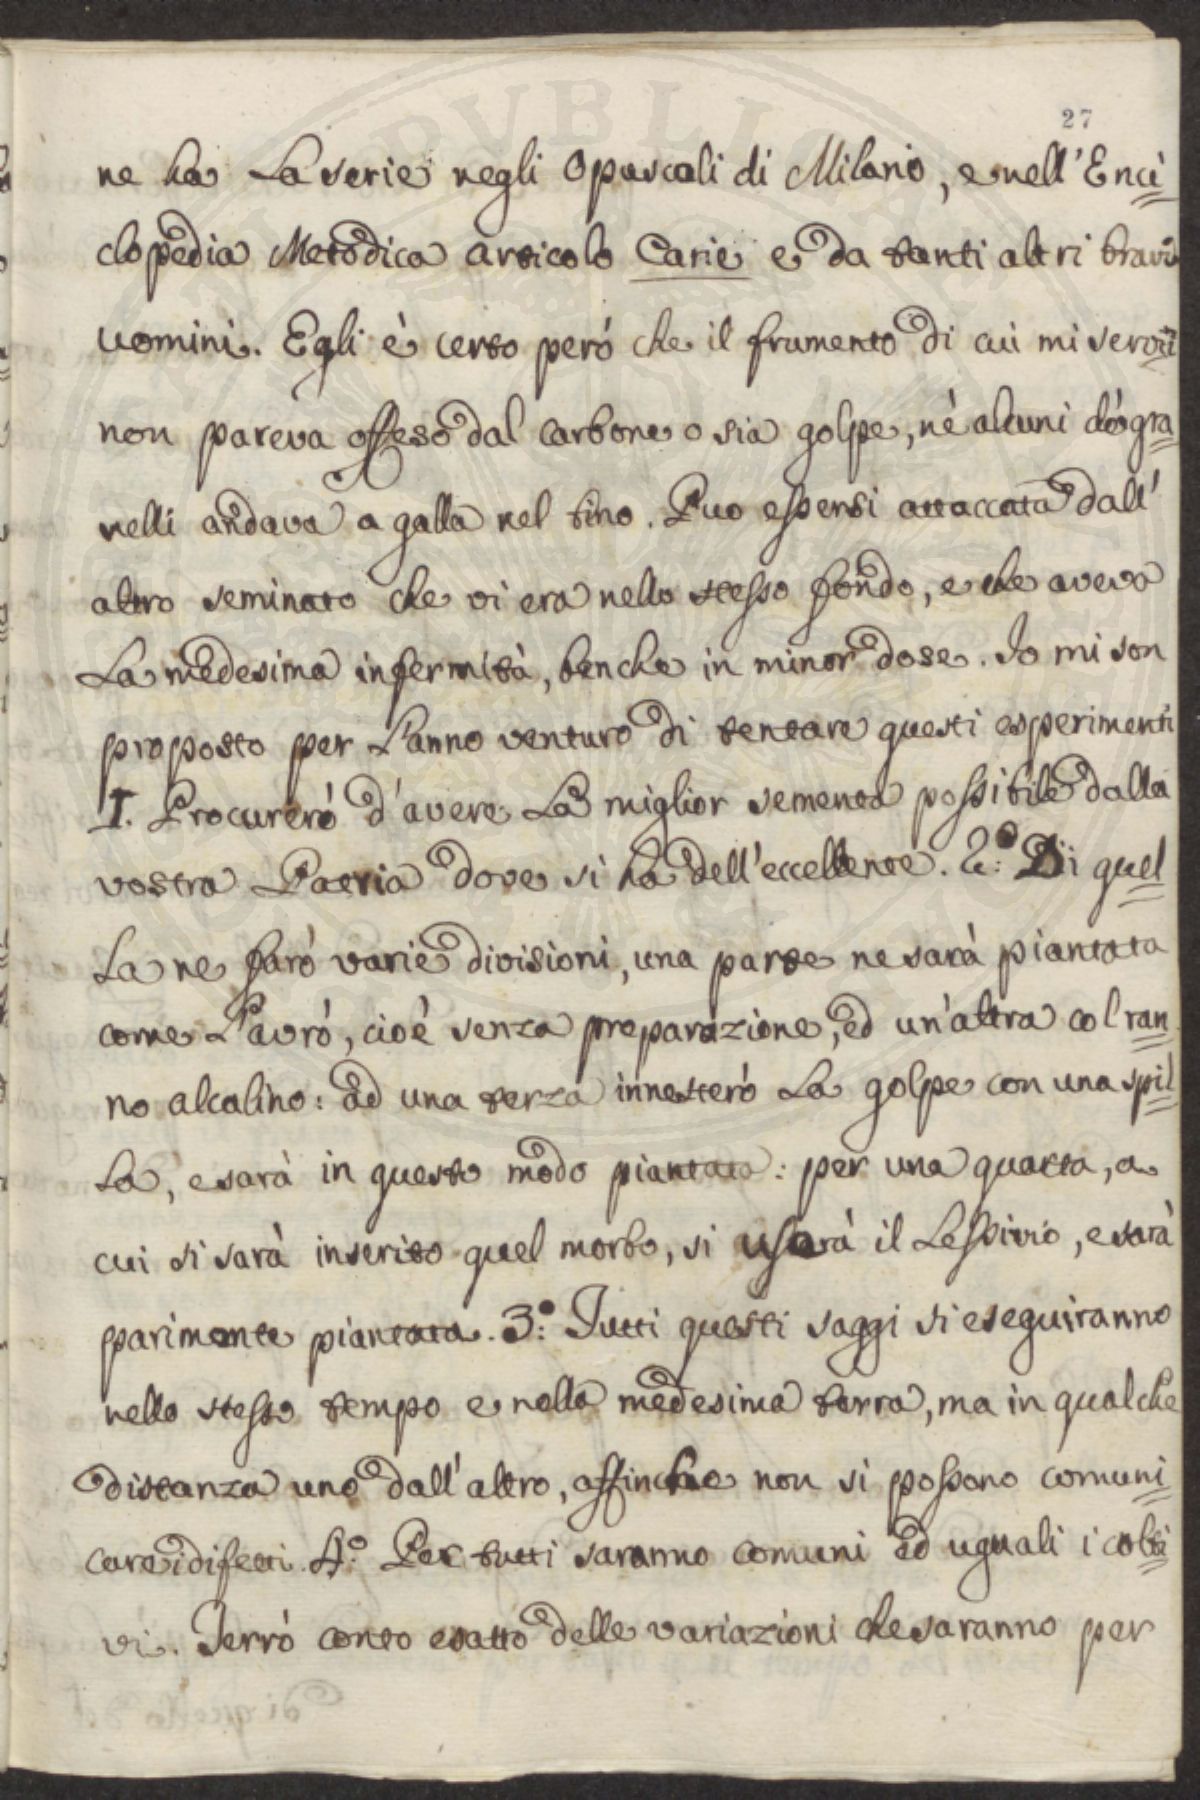 27
ne ha La serie negli Opuscoli di Milano, e nell'Enci=
clopedia Metodica articolo Carie e da tanti altri bravi
uomini. Egli è certo peró che il frumento di cui mi servii
non pareva offeso dal carbone o sia golpe, nè alcuni dè gra=
nelli andava a galla nel tino. Puo essersi attaccata dall'
altro seminato che vi era nello stesso fondo, e che aveva
La medesima infermità, benche in minor dose. Io mi son
proposto per L'anno venturo di tentare questi esperimenti
I. Procureró d'avere La miglior sementa possibile dalla
vostra Patria dove si ha dell'eccellente. 2.° Di quel=
La ne farò varie divisioni, una parte ne sarà piantata
come L'avró, cioè senza preparazione, ed un'altra col ran=
no alcalino: ad una terza innesteró La golpe con una spil=
La, e sarà in questo modo piantata: per una quarta, a
cui si sarà inserito quel morbo, si userà il Lessivio, e sarà
parimente piantata. 3.° Tutti questi saggi si eseguiranno
nello stesso tempo e nella medesima terra, ma in qualche
distanza uno dall'altro, affinche non si possano comuni=
care i difetti. 4.° Per tutti saranno comuni ed uguali i colti=
vi. Terrò conto esatto delle variazioni che saranno per
PUBLICA